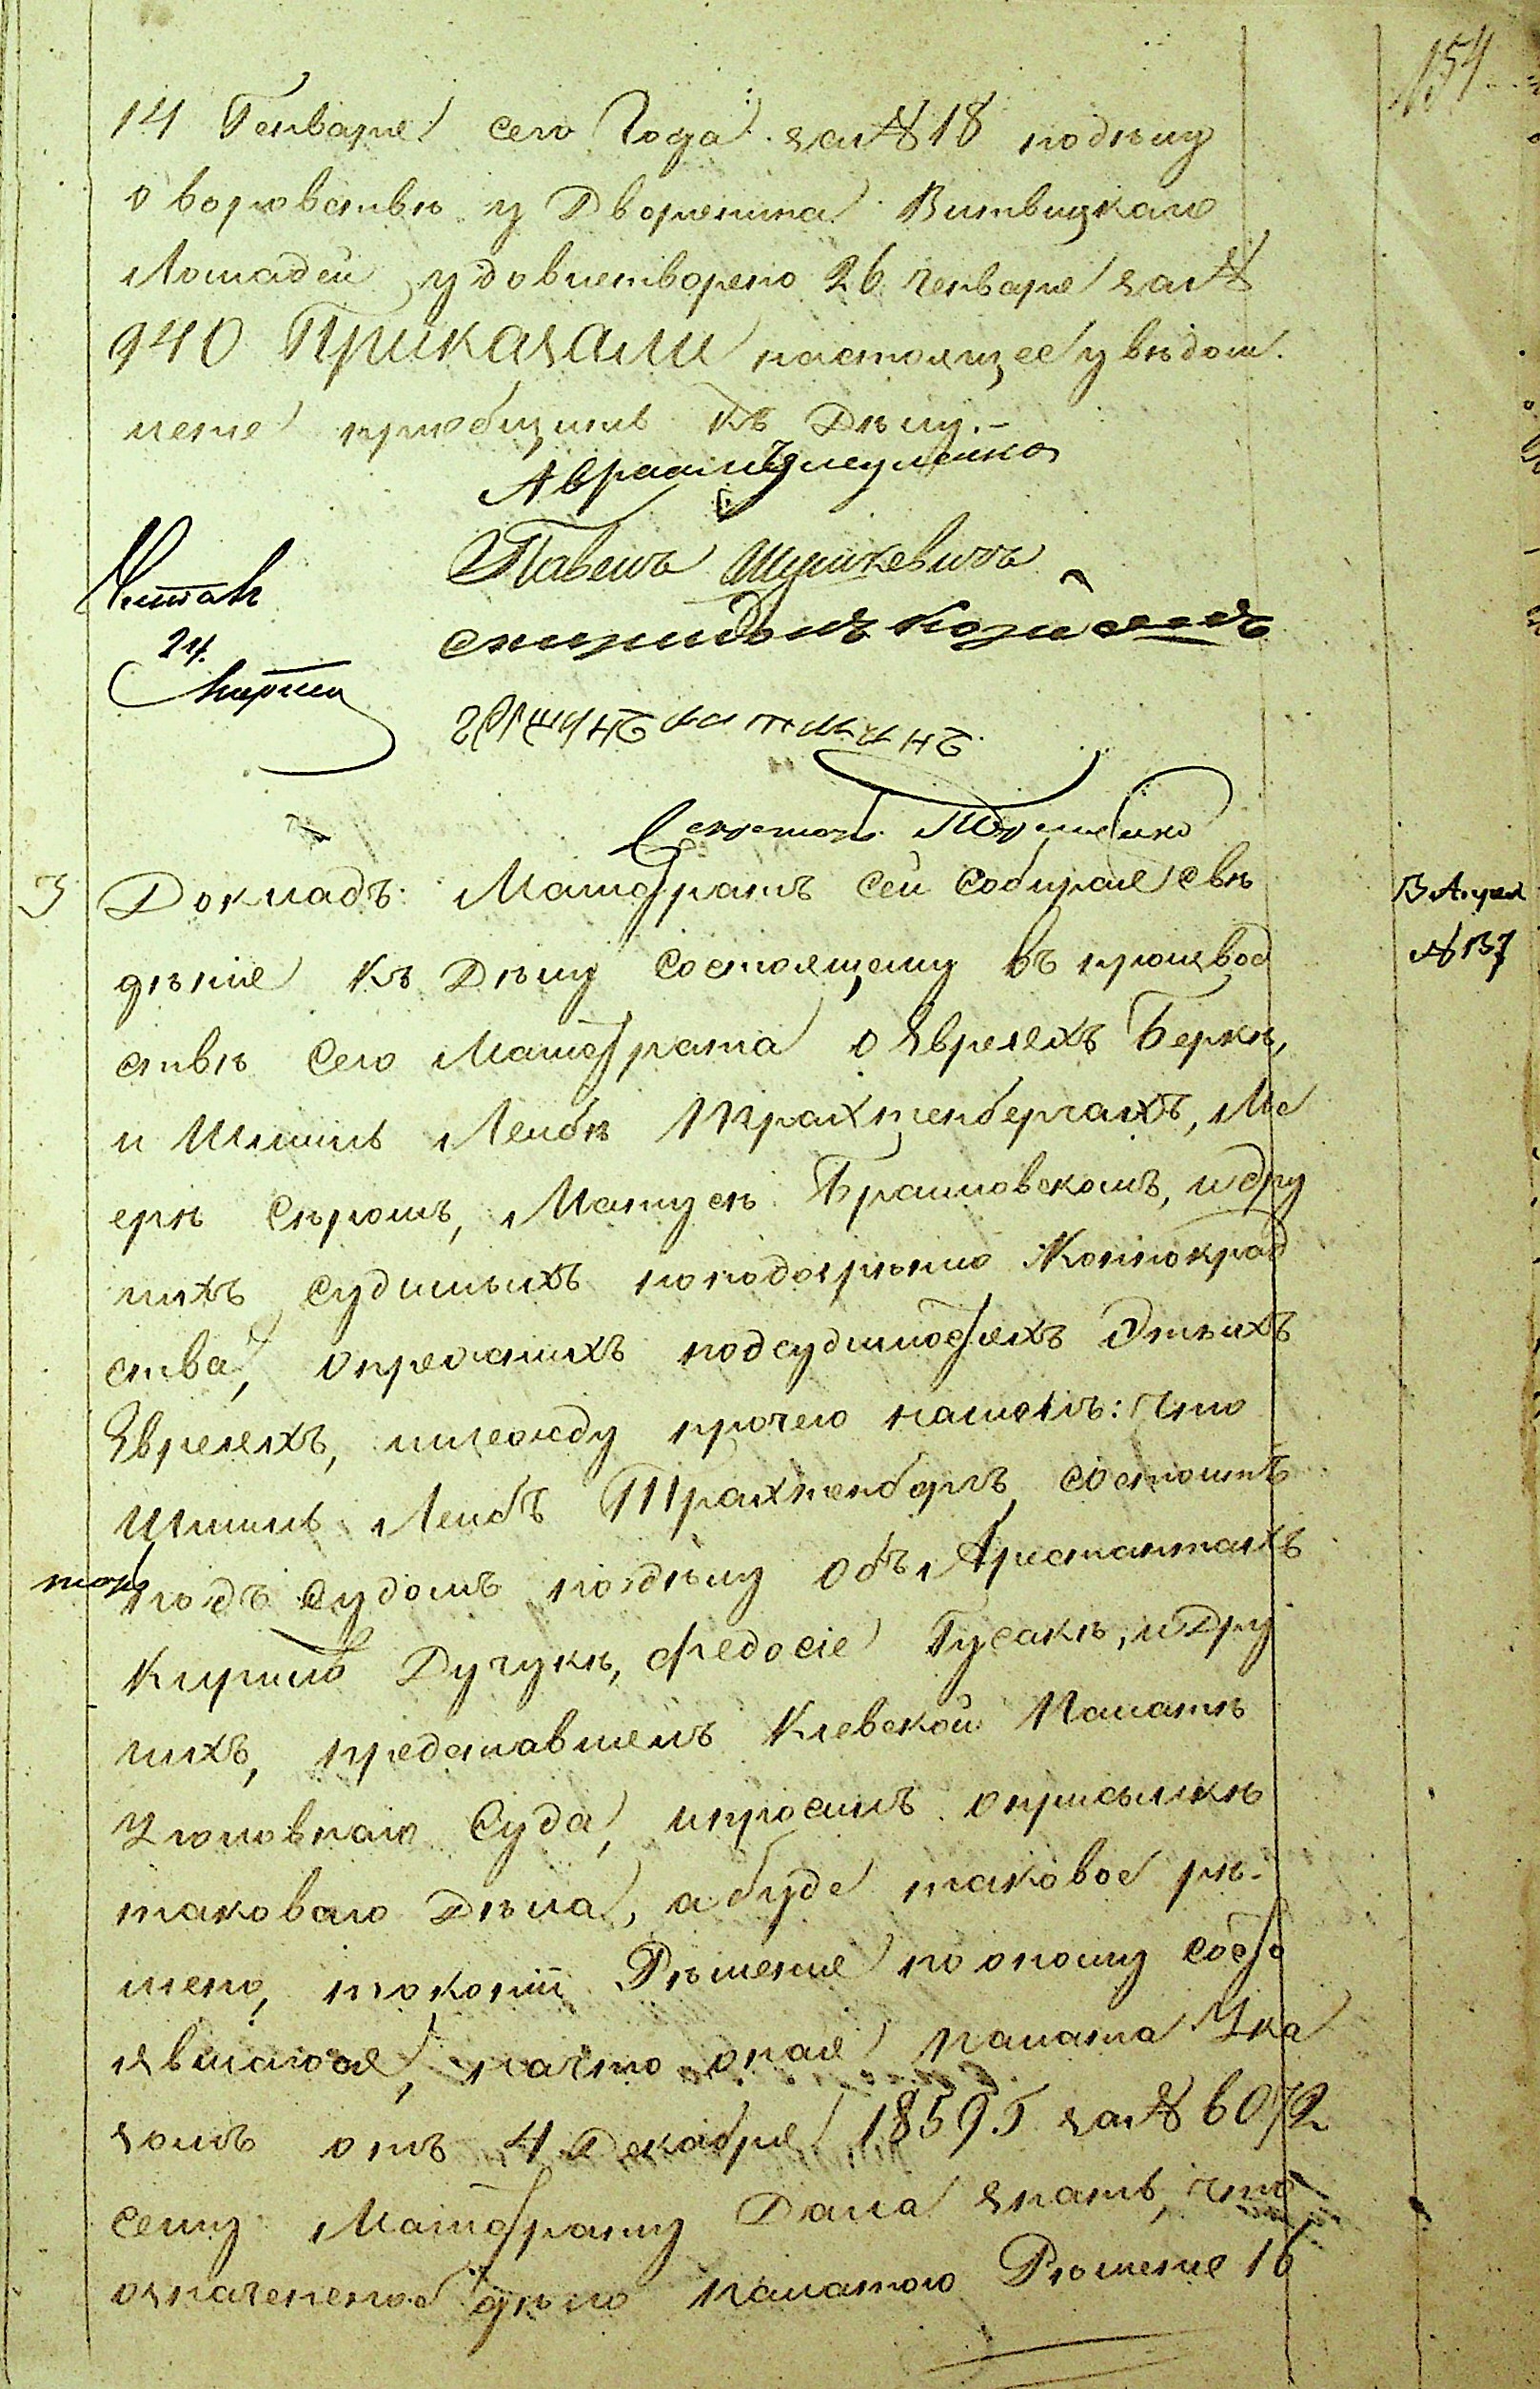 154
14 Генваря сего Года за № 18 по дѣлу
о воровствѣ у Дворянина Витвицкаго
Лошадей удовлетворено 26 генваря за №
940 Приказали настоящее увѣдом
леніе пріобщить къ Дѣлу.
Авраамъ
Павелъ Шушкевичъ
Спиридонъ
Читалъ
24.
Марта
Секретарь
3
Докладъ: Магистратъ сей собирая свѣ
В Апрел
№ 137
дѣніе къ Дѣлу состоящему въ производ
ствѣ сего Магистрата о Евреяхъ Беркѣ,
и Шлимѣ Лейбѣ Трахтенбергахъ, Ме
ерѣ Сѣромъ, Матусѣ Браиловскомъ, и дру
гихъ судимыхъ по подозрѣнію Конокрад
ства, о прежнихъ подсудимостяхъ этыхъ
Евреяхъ, и между прочего нашолъ: что
Шлимъ Лейбъ Трахтенбергъ состоитъ
подъ судомъ по дѣлу объ Арестантахъ
Кирилѣ Дучукѣ, Федосіе Гусакѣ, и дру
гихъ, представилъ Кіевской Палатѣ
Уголовнаго Суда, и просилъ о присылкѣ
таковаго Дѣла, а буде таковое рѣ-
шено, то копіи Рѣшеніе по оному состо
явшагося, на что оная Палата Ука
зомъ отъ 4 Декабря 1859 г за № 6072
сему Магистрату Дала знать, что
означенное дѣло палатою Рѣшеніе 16